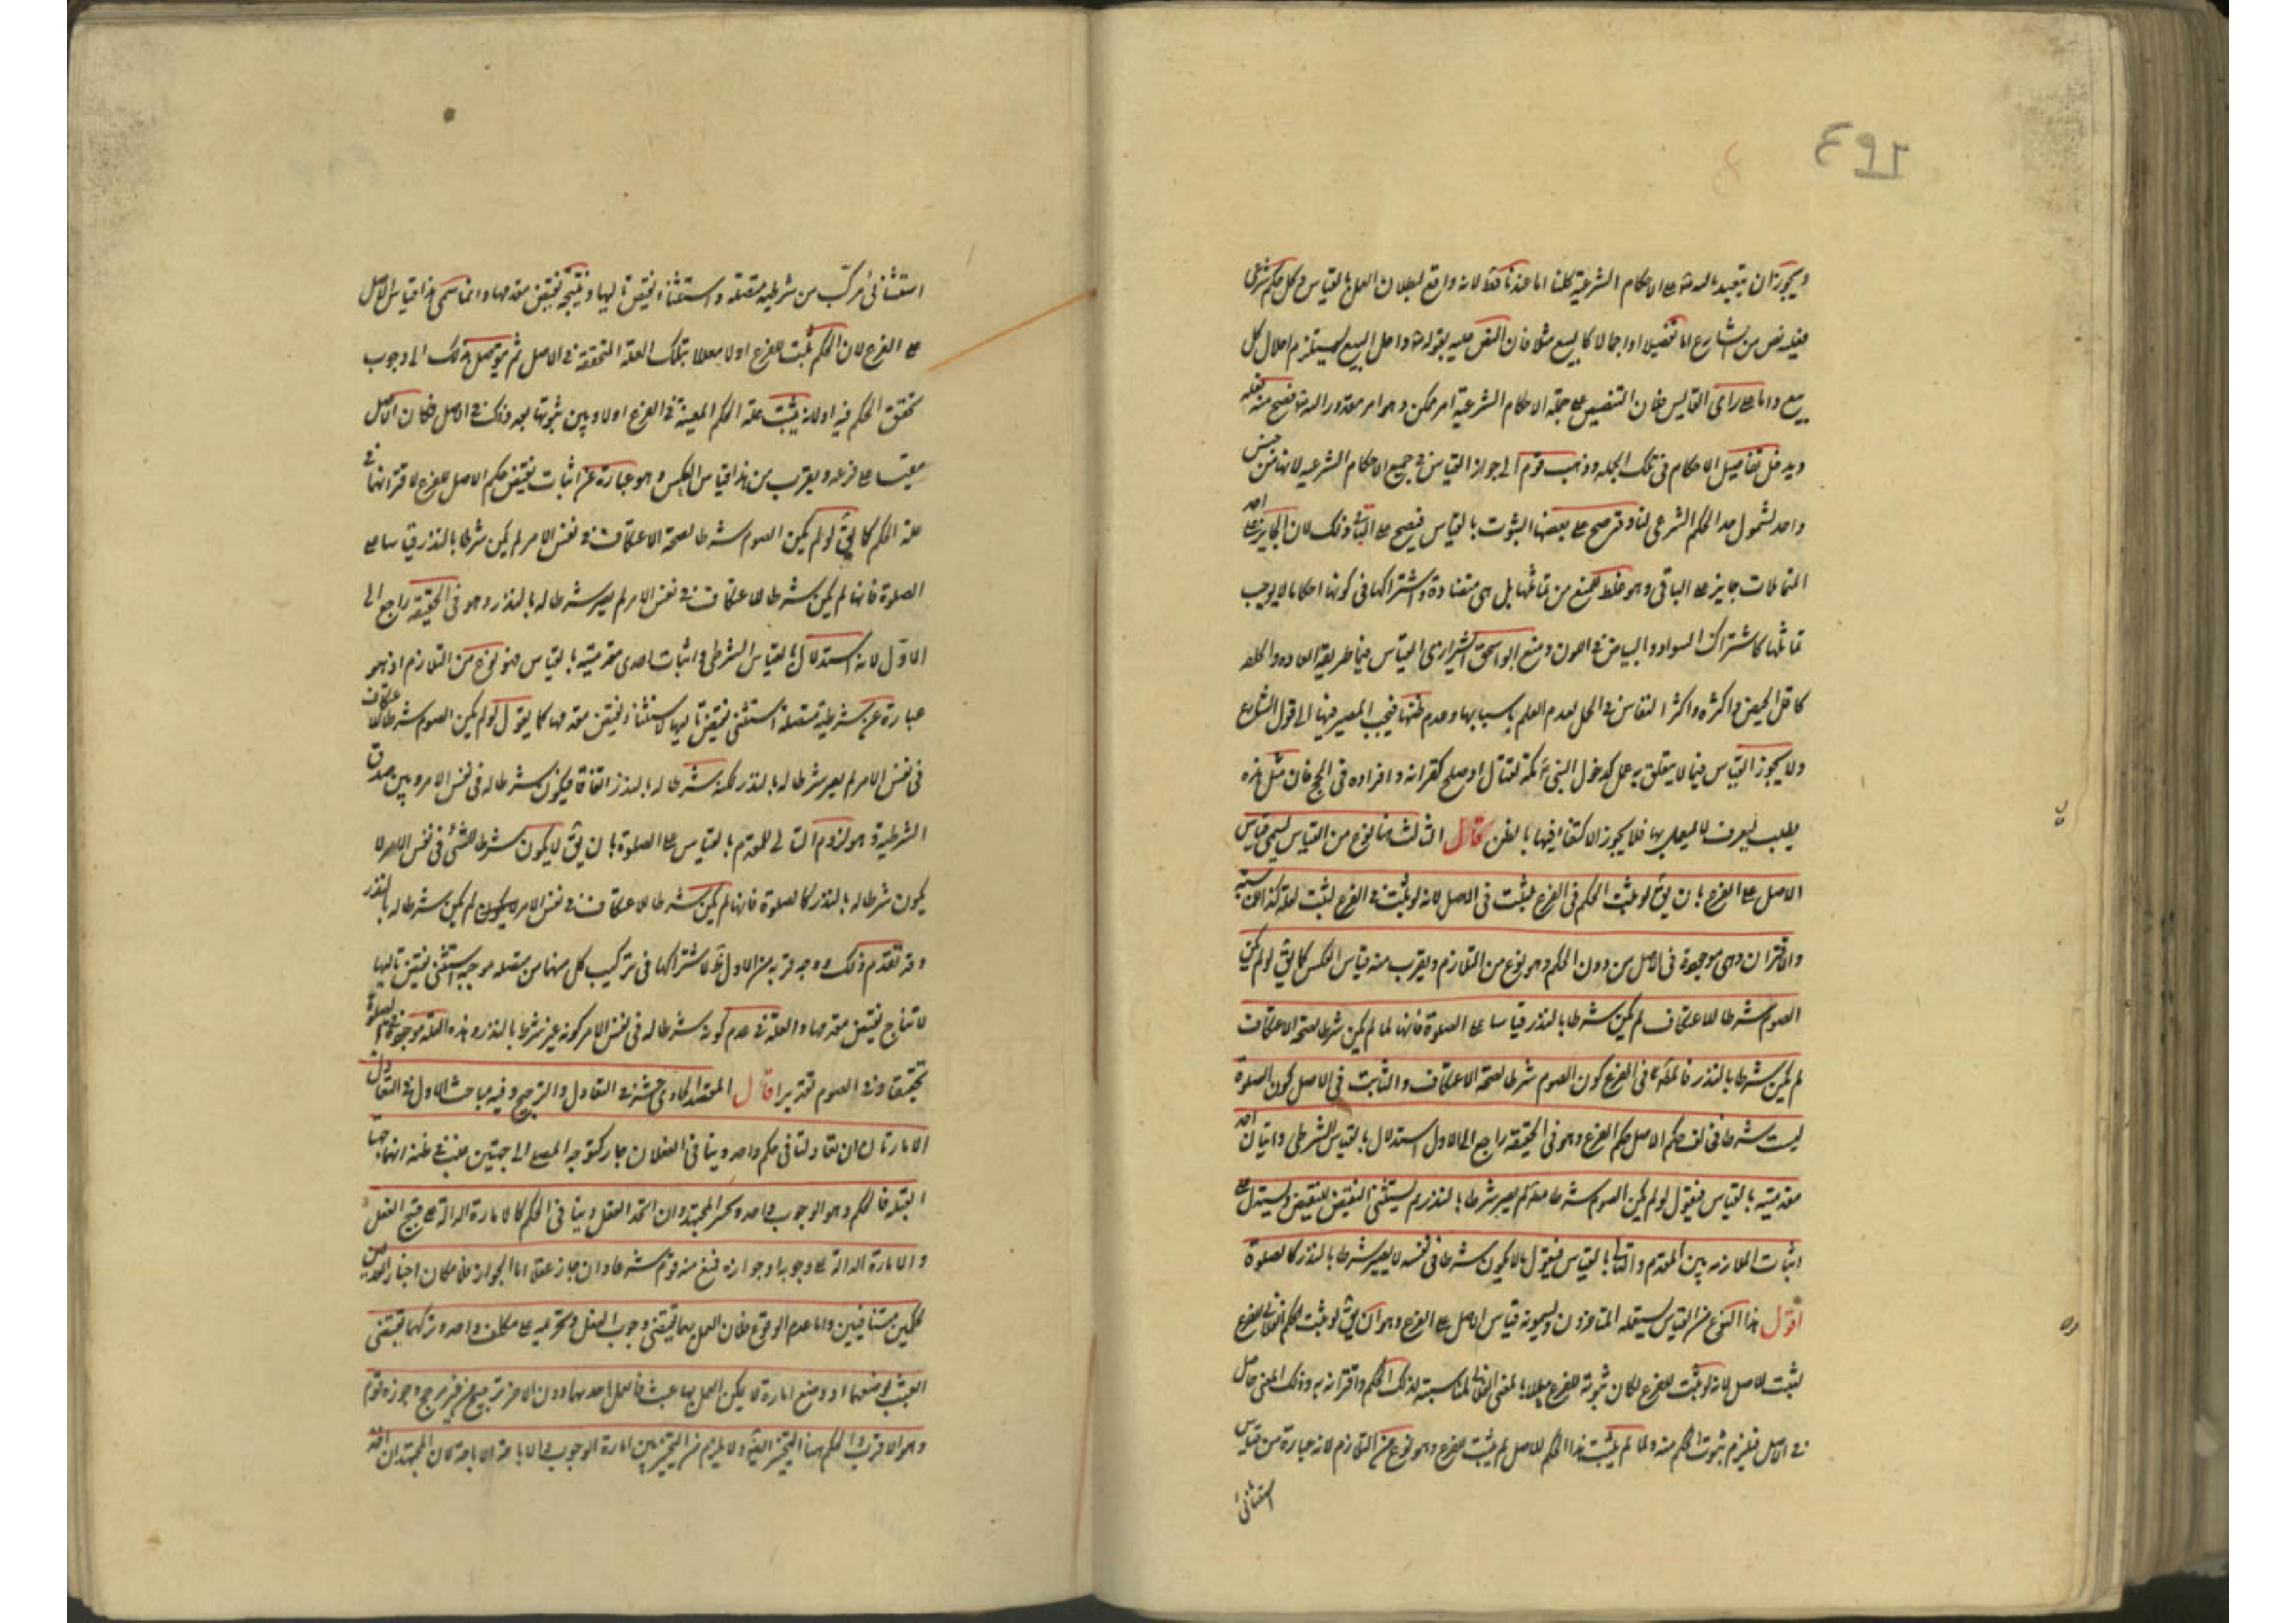 ويجوز ان يتعبد بالله تعالى الاحكام الشرعية كلنا اما عندنا فقط لانه واقع لبطلان العمل بالقياس وكل حكم شرعي
فيه نص من الشارع اما تفصيلا او اجمالا كالبيع مثلا فان النص عليه بقوله تعالى واحل البيع يستلزم احلال كل
بيع واما على راى القايس فان التنصيص على جملة الاحكام الشرعية امر ممكن وهو امر مقدور الله تعالى فصح منه فعله
ويدخل تفاصيل الاحكام فى تلك الجملة وذهب قوم الى جواز القياس فى جميع الاحكام الشرعيه لانها من جنس
واحد لشمول حد الحكم الشرعى لها وقد صح على بعضها الثبوت بالقياس فيصح على الباقى وذلك لان الجايز على احد
المتماثلات جايز على الباقى وهو غلط للمنع من تماثلها بل هى متضادة واشتراكها فى كونها احكاما لا يوجب
تماثلها كاشتراك السواد والبياض فى اللون ومنع ابو اسحق الشيرازى القياس فيما طريقه العاده والخلقه
كاقل الحيض واكثره واكثر النفاس والحمل لعدم العلم باسبابها وعدم ظنها فيجب المصير فيها الى قول الشارع
ولا يجوز القياس فيما لا يتعلق به عمل كدخول النبى مكة لقتال او صلح كقرانه وافراده فى الحج فان مثل هذه
يطلب ليعرف لا ليعمل بها فلا يجوز الاكتفاء فيها بالظن قال الثالث هنا نوع من القياس يسمى قياس
الاصل على الفرع بان يق لو ثبت الحكم فى الفرع لثبت فى الاصل لانه لو ثبت فى الفرع لثبت لعلة كذا للمناسبة
والاقتران وهى موجودة فى الاصل من دون الحكم وهو نوع من التلازم ويقرب منه قياس العكس كما يق لو لم يكن
الصوم شرطا للاعتكاف لم يكن شرطا بالنذر قياسا على الصلوة فانها لما لم يكن شرطا لصحة الاعتكاف
لم يكن شرطا بالنذر فالمط فى الفرع كون الصوم شرطا لصحة الاعتكاف والثابت فى الاصل كون الصلوة
ليست شرطا فخالف حكم الاصل حكم الفرع وهو فى الحقيقة راجع الى الاول استدلال بالقياس الشرطى واثبات احد
مقدمتيه بالقياس فيقول لو لم يكن الصوم شرطا مط لم يصر شرطا بالنذر ثم يستثنى النقيض للنقيض ويستدل على
اثبات الملازمه بين المقدم والتالى بالقياس فيقول ما لا يكون شرطا فى نفسه لا يصير شرطا بالنذر كالصلوة
اقول هذا النوع من القياس يستعمله المتاخرون ويسمونه قياس الاصل على الفرع وهو ان يق لو ثبت الحكم الفلانى للفرع
لثبت للاصل لانه لو ثبت للفرع لكان ثبوته للفرع معللا بالمعنى الفلانى لمناسبته لذلك الحكم واقترانه به وذلك المعنى حاصل
فى الاصل فيلزم ثبوت الحكم منه ولما لم يثبت هذا الحكم للاصل لم يثبت للفرع وهو نوع من التلازم لانه عبارة من قياس
استثنائى
استثنائى مركب من شرطية متصلة واستثناء نقيض تاليها وينتجه نقيض مقدمها وانما سمى هذا قياس الاصل
على الفرع لان الحكم يثبت للفرع اولا معللا بتلك العلة المتحققة فى الاصل ثم يتوصل بذلك الى وجوب
تحقق الحكم فيه او لانه يثبت علة الحكم المعينة فى الفرع اولا ويبين ثبوتها بعد ذلك فى الاصل فكان الاصل
مقيسا على فرعه ويقرب من هذا قياس العكس وهو عبارة عن اثبات نقيض حكم الاصل للفرع لافتراقهما فى
علة الحكم كما يق لو لم يكن الصوم شرطا لصحة الاعتكاف فى نفس الامر لم يكن شرطا بالنذر قياسا على
الصلوة فانها لم يكن شرطا للاعتكاف فى نفس الامر لم يصر شرطا له بالنذر وهو فى الحقيقة راجع الى
الاول لانه استدلال بالقياس الشرطى واثبات احدى مقدمتيه بالقياس فهو نوع من التلازم اذ هو
عبارة عن شرطية متصلة استثنى نقيض تاليها لاستثناء نقيض مقدمها كما يقول لو لم يكن الصوم شرطا للاعتكاف
فى نفس الامر لم يصر شرطا له بالنذر لكنه شرطا له بالنذر اتفاقا فيكون شرطا له فى نفس الامر وبين صدق
الشرطية وهو لزوم التالى للمقدم بالقياس على الصلوة بان يق لا يكون شرطا للشئ فى نفس الامر لا
يكون شرطا له بالنذر كالصلوة فانها لم يكن شرطا للاعتكاف فى نفس الامر لم يكن شرطا له بالنذر
وقد تقدم ذلك ووجه قربه من الاول اشتراكهما فى تركيب كل منهما من متصلة موجبة استثنى نقيض تاليها
لانتاج نقيض مقدمها والعلة فى عدم كونه شرطا له فى نفس الامر كونه غير شرط بالنذر وهذه العلة موجودة فى الصلوة
تحقيقا وفى الصوم تقديرا قال المقصد الحادى عشر فى التعادل والترجيح وفيه مباحث الاول فى التعادل
الامارتان ان تعادلتا فى حكم واحد وتنافى الفعلان جاز كتوجه المصلى الى جهتين غلب على ظنه انهما جهتا
القبلة فالحكم وهو الوجوب واحد وتخير المجتهد وان اتحد الفعل وتنافى الحكم كالامارة الدالة على قبح الفعل
والامارة الدالة على وجوبه او جوازه فمنع منه قوم شرعا وان جاز عقلا اما الجواز فلامكان اخبار العدلين
بحكمين متنافيين واما عدم الوقوع فلان العمل بهما يقتضى وجوب الفعل وتحريمه على مكلف واحد وتركهما يقتضى
العبث بوضعهما اذ وضع امارة لا يمكن العمل بها عبث والعمل باحدهما دون الاخر ترجيح من غير مرجح وجوزه قوم
وهو الاقرب والحكم هنا التخيير ايضا ولا يلزم من التخيير بين امارة الوجوب والاباحة الاباحة لان المجتهد ان اخذ